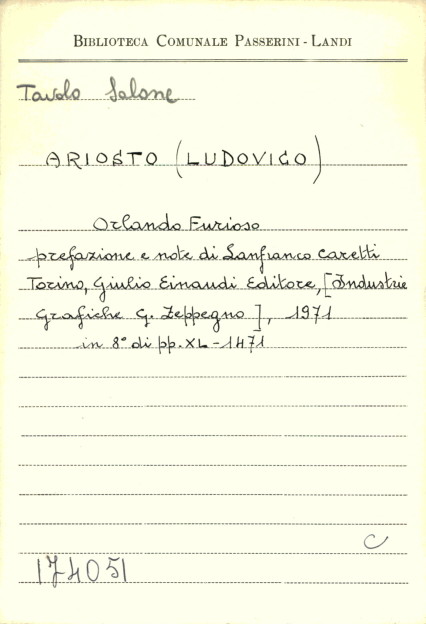 BIBLIOTECA COMUNALE PASSERINI - LANDI
Tavolo Salone
ARIOSTO (LUDOVICO)
Orlando Furioso
prefazione e note di Lanfranco Caretti
Torino, Giulio Einaudi Editore, [Industrie
Grafiche G. Zeppegno], 1971
in 8° di pp. XL - 1471
C
174051